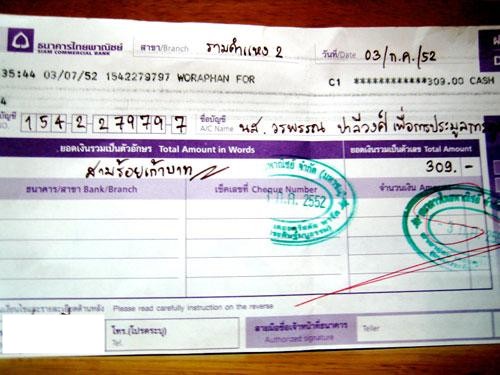 ธนาคารไทยพาณิชย์ สาขา/Branch รามคำแหง 2 วันที่/Date 03/ก.ค./52
SIAM COMMERCIAL BANK
35:44 03/07/52 1542279797 WORAPHAN FOR C1 ************309.00 CASH
บัญชี 1542279797 ชื่อบัญชี A/C Name นส. วรพรรณ ปาลีวงศ์ เพื่อการประมูล
ยอดเงินรวมเป็นตัวอักษร Total Amount in Words ยอดเงินรวมเป็นตัวเลข Total Amount
สามร้อยเก้าบาท 309.-
ธนาคาร/สาขา Bank/Branch เช็คเลขที่ Cheque Number จำนวนเงิน Amount
ก.ค. 2552
Please read carefully instruction on the reverse
โทร.(โปรดระบุ) ลายมือชื่อเจ้าหน้าที่ธนาคาร Teller
Tel. Authorized signature